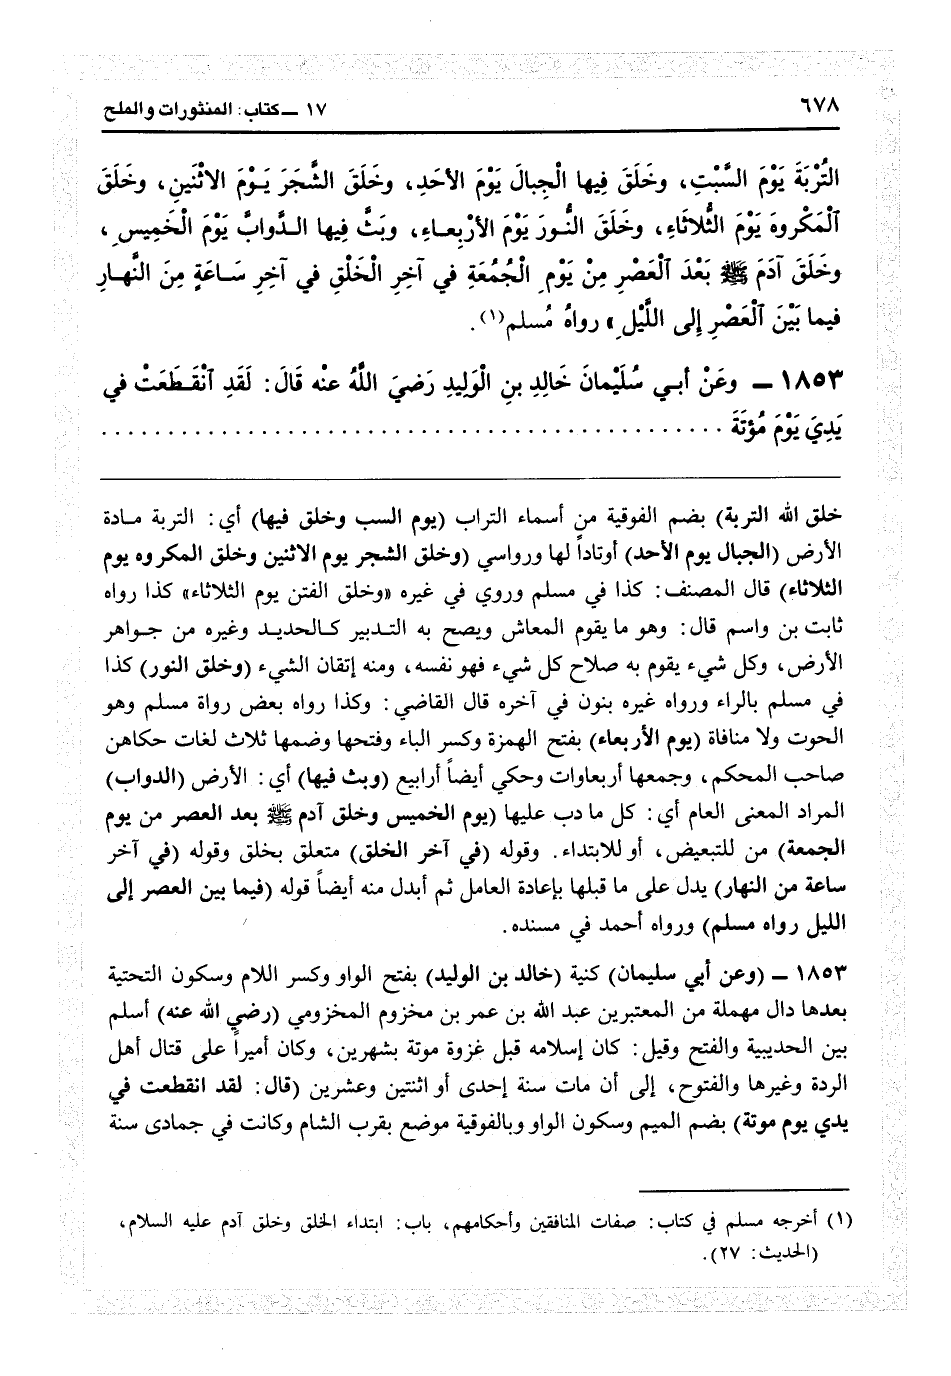 ٦٧٨
١٧ ـ كتاب: المنثورات والملح
التُّرْبَةَ يَوْمَ السَّبْتِ، وخَلَقَ فِيها الْجِبالَ يَوْمَ الأحَدِ، وخَلَقَ الشَّجَرَ يَـوْمَ الاثْنَينِ، وخَلَقَ
ٱلْمَكْروهَ يَوْمَ الثُّلاثَاءِ، وخَلَقَ النُّـورَ يَوْمَ الأرْبِعـاءِ، وبَثَّ فِيها الـدَّوابَّ يَوْمَ الْخَمِيسِ،
وخَلَقَ آدَمَ ﷺ بَعْدَ ٱلْعَصْرِ مِنْ يَوْمِ الْجُمُعَةِ في آخِرِ الْخَلْقِ في آخِرِ سَـاعَةٍ مِنَ النَّهارِ
فيما بَيْنَ ٱلْعَصْرِ إلى اللَّيْلِ» رواهُ مُسلم(١).
١٨٥٣ ـ وعَنْ أبـي سُلَيْمانَ خَالِدِ بنِ الْوَلِيدِ رَضيَ اللَّهُ عنْه قَالَ: لَقَدِ ٱنْقَـطَعَتْ في
يَدِيَ يَوْمَ مُؤتَةَ ........................................
خلق الله التربة) بضم الفوقية من أسماء التراب (يوم السب وخلق فيها) أي: التربة مـادة
الأرض (الجبال يوم الأحد) أوتاداً لها ورواسي (وخلق الشجر يوم الاثنين وخلق المكروه يوم
الثلاثاء) قال المصنف: كذا في مسلم وروي في غيره «وخلق الفتن يوم الثلاثاء» كذا رواه
ثابت بن واسم قال: وهو ما يقوم المعاش ويصح به التـدبير كـالحديـد وغيره من جـواهر
الأرض، وكل شيء يقوم به صلاح كل شيء فهو نفسه، ومنه إتقان الشيء (وخلق النور) كذا
في مسلم بالراء ورواه غيره بنون في آخره قال القاضي: وكذا رواه بعض رواة مسلم وهو
الحوت ولا منافاة (يوم الأربعاء) بفتح الهمزة وكسر الباء وفتحها وضمها ثلاث لغات حكاهن
صاحب المحكم، وجمعها أربعاوات وحكي أيضاً أرابيع (وبث فيها) أي: الأرض (الدواب)
المراد المعنى العام أي: كل ما دب عليها (يوم الخميس وخلق آدم ﷺ بعد العصر من يوم
الجمعة) من للتبعيض، أو للابتداء. وقوله (في آخر الخلق) متعلق بخلق وقوله (في آخر
ساعة من النهار) يدل على ما قبلها بإعادة العامل ثم أبدل منه أيضاً قوله (فيما بين العصر إلى
الليل رواه مسلم) ورواه أحمد في مسنده.
١٨٥٣ ـ (وعن أبي سليمان) كنية (خالد بن الوليد) بفتح الواو وكسر اللام وسكون التحتية
بعدها دال مهملة من المعتبرين عبد الله بن عمر بن مخزوم المخزومي (رضي الله عنه) أسلم
بين الحديبية والفتح وقيل: كان إسلامه قبل غزوة موتة بشهرين، وكان أميراً على قتال أهل
الردة وغيرها والفتوح، إلى أن مات سنة إحدى أو اثنتين وعشرين (قال: لقد انقطعت في
يدي يوم موتة) بضم الميم وسكون الواو وبالفوقية موضع بقرب الشام وكانت في جمادى سنة
(١) أخرجه مسلم في كتاب: صفات المنافقين وأحكامهم، باب: ابتداء الخلق وخلق آدم عليه السلام،
(الحديث: ٢٧).